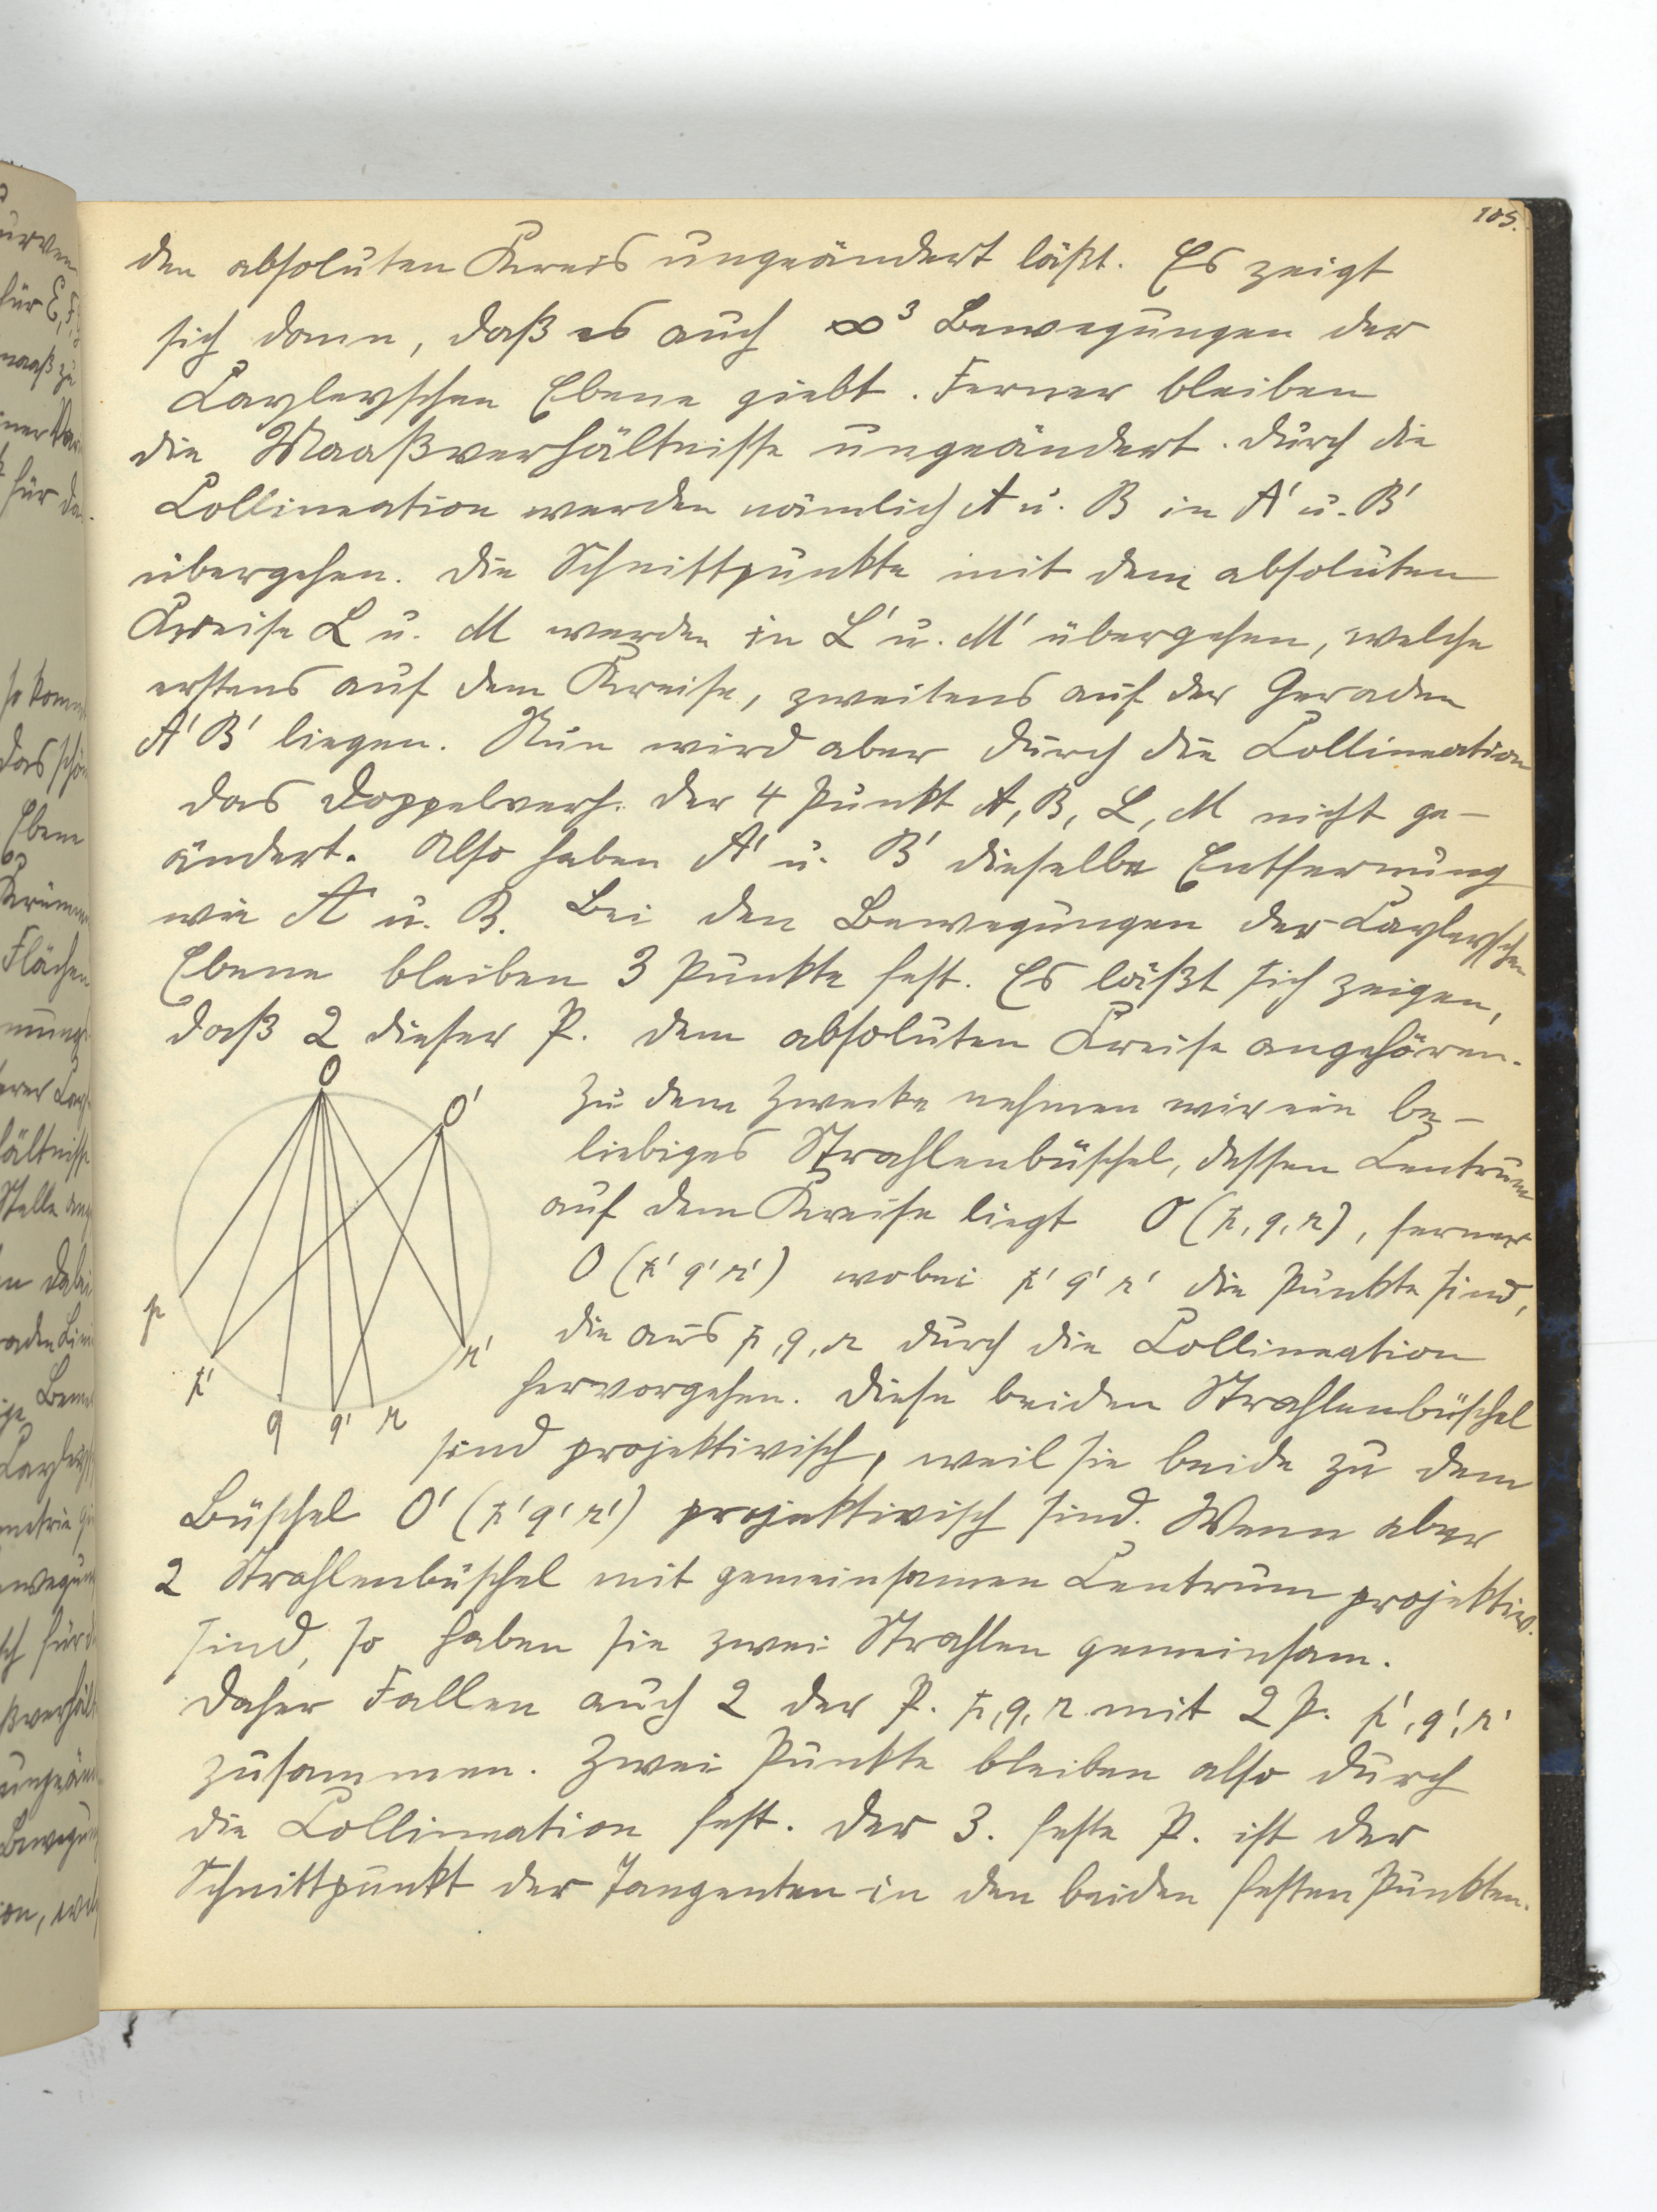 105.
den absoluten Kreis ungeändert läßt. Es zeigt
sich dann, daß es auch ∞³ Bewegungen der
Cayleyschen Ebene giebt. Ferner bleiben
die Maaßverhältnisse ungeändert. Durch die
Collineation werden nämlich A u. B in A' u. B'
übergehen. Die Schnittpunkte mit dem absoluten
Kreise L u. M werden in L' u. M' übergehen, welche
erstens auf dem Kreise, zweitens auf der Geraden
A'B' liegen. Nun wird aber durch die Collineation
das Doppelverh. der 4 Punkt A, B, L, M nicht ge-
ändert. Also haben A' u. B' dieselbe Entfernung
wie A u. B. Bei den Bewegungen der Cayleyschen
Ebene bleiben 3 Punkte fest. Es läßt sich zeigen,
daß 2 dieser P. dem absoluten Kreise angehören.
Zu dem Zwecke nehmen wir ein be-
liebiges Strahlenbüschel, dessen Centrum
auf dem Kreise liegt O (p, q, r), ferner
O (p' q' r') wobei p' q' r' die Punkte sind,
die aus p, q, r durch die Collineation
hervorgehen. Diese beiden Strahlenbüschel
sind projektivisch, weil sie beide zu dem
Büschel O' (p' q' r') projektivisch sind. Wenn aber
2 Strahlenbüschel mit gemeinsamen Centrum projektiv.
sind, so haben sie zwei Strahlen gemeinsam.
Daher Fallen auch 2 der P. p, q, r mit 2 P. p', q', r'
zusammen. Zwei Punkte bleiben also durch
die Collineation fest. Der 3. feste P. ist der
Schnittpunkt der Tangenten in den beiden festen Punkten.
O
O'
p
p'
q
q'
r
r'